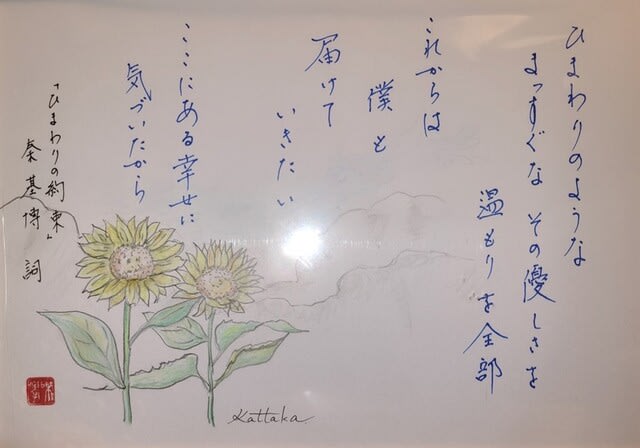 ひまわりのような
まっすぐな その優しさを
温もりを全部
これからは
僕も
届けて
いきたい
ここにある幸せに
気づいたから
「ひまわりの約束」
秦基博 詞
Kattaka